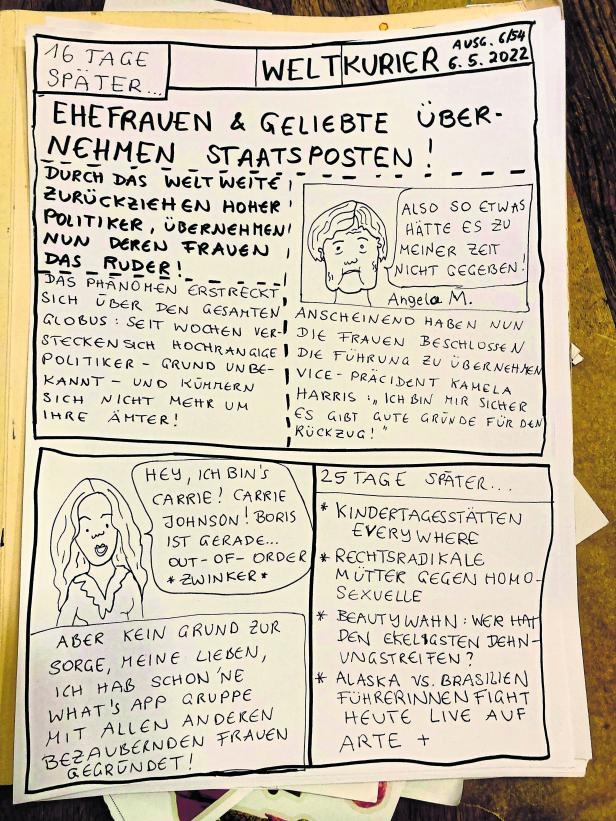 16 TAGE
SPÄTER...
WELTKURIER
AUSG. 6/54
6.5.2022
EHEFRAUEN & GELIEBTE ÜBER-
NEHMEN STAATSPOSTEN!
DURCH DAS WELTWEITE
ZURÜCKZIEHEN HOHER
POLITIKER, ÜBERNEHMEN
NUN DEREN FRAUEN
DAS RUDER!
DAS PHÄNOMEN ERSTRECKT
SICH ÜBER DEN GESAMTEN
GLOBUS: SEIT WOCHEN VER-
STECKEN SICH HOCHRANGIGE
POLITIKER - GRUND UNBE-
KANNT - UND KÜMMERN
SICH NICHT MEHR UM
IHRE ÄMTER!
ALSO SO ETWAS
HÄTTE ES ZU
MEINER ZEIT
NICHT GEGEBEN!
Angela M.
ANSCHEINEND HABEN NUN
DIE FRAUEN BESCHLOSSEN
DIE FÜHRUNG ZU ÜBERNEHMEN
VICE-PRÄCIDENT KAMELA
HARRIS: „ICH BIN MIR SICHER
ES GIBT GUTE GRÜNDE FÜR DEN
RÜCKZUG!"
HEY, ICH BIN'S
CARRIE! CARRIE
JOHNSON! BORIS
IST GERADE...
OUT-OF-ORDER
*ZWINKER*
ABER KEIN GRUND ZUR
SORGE, MEINE LIEBEN,
ICH HAB SCHON 'NE
WHAT'S APP GRUPPE
MIT ALLEN ANDEREN
BEZAUBERNDEN FRAUEN
GEGRÜNDET!
25 TAGE SPÄTER...
* KINDERTAGESSTÄTTEN
EVERYWHERE
* RECHTSRADIKALE
MÜTTER GEGEN HOMO-
SEXUELLE
* BEAUTYWAHN: WER HAT
DEN EKELIGSTEN DEHN-
UNGSTREIFEN?
* ALASKA VS. BRASILIEN
FÜHRERINNEN FIGHT
HEUTE LIVE AUF
ARTE +